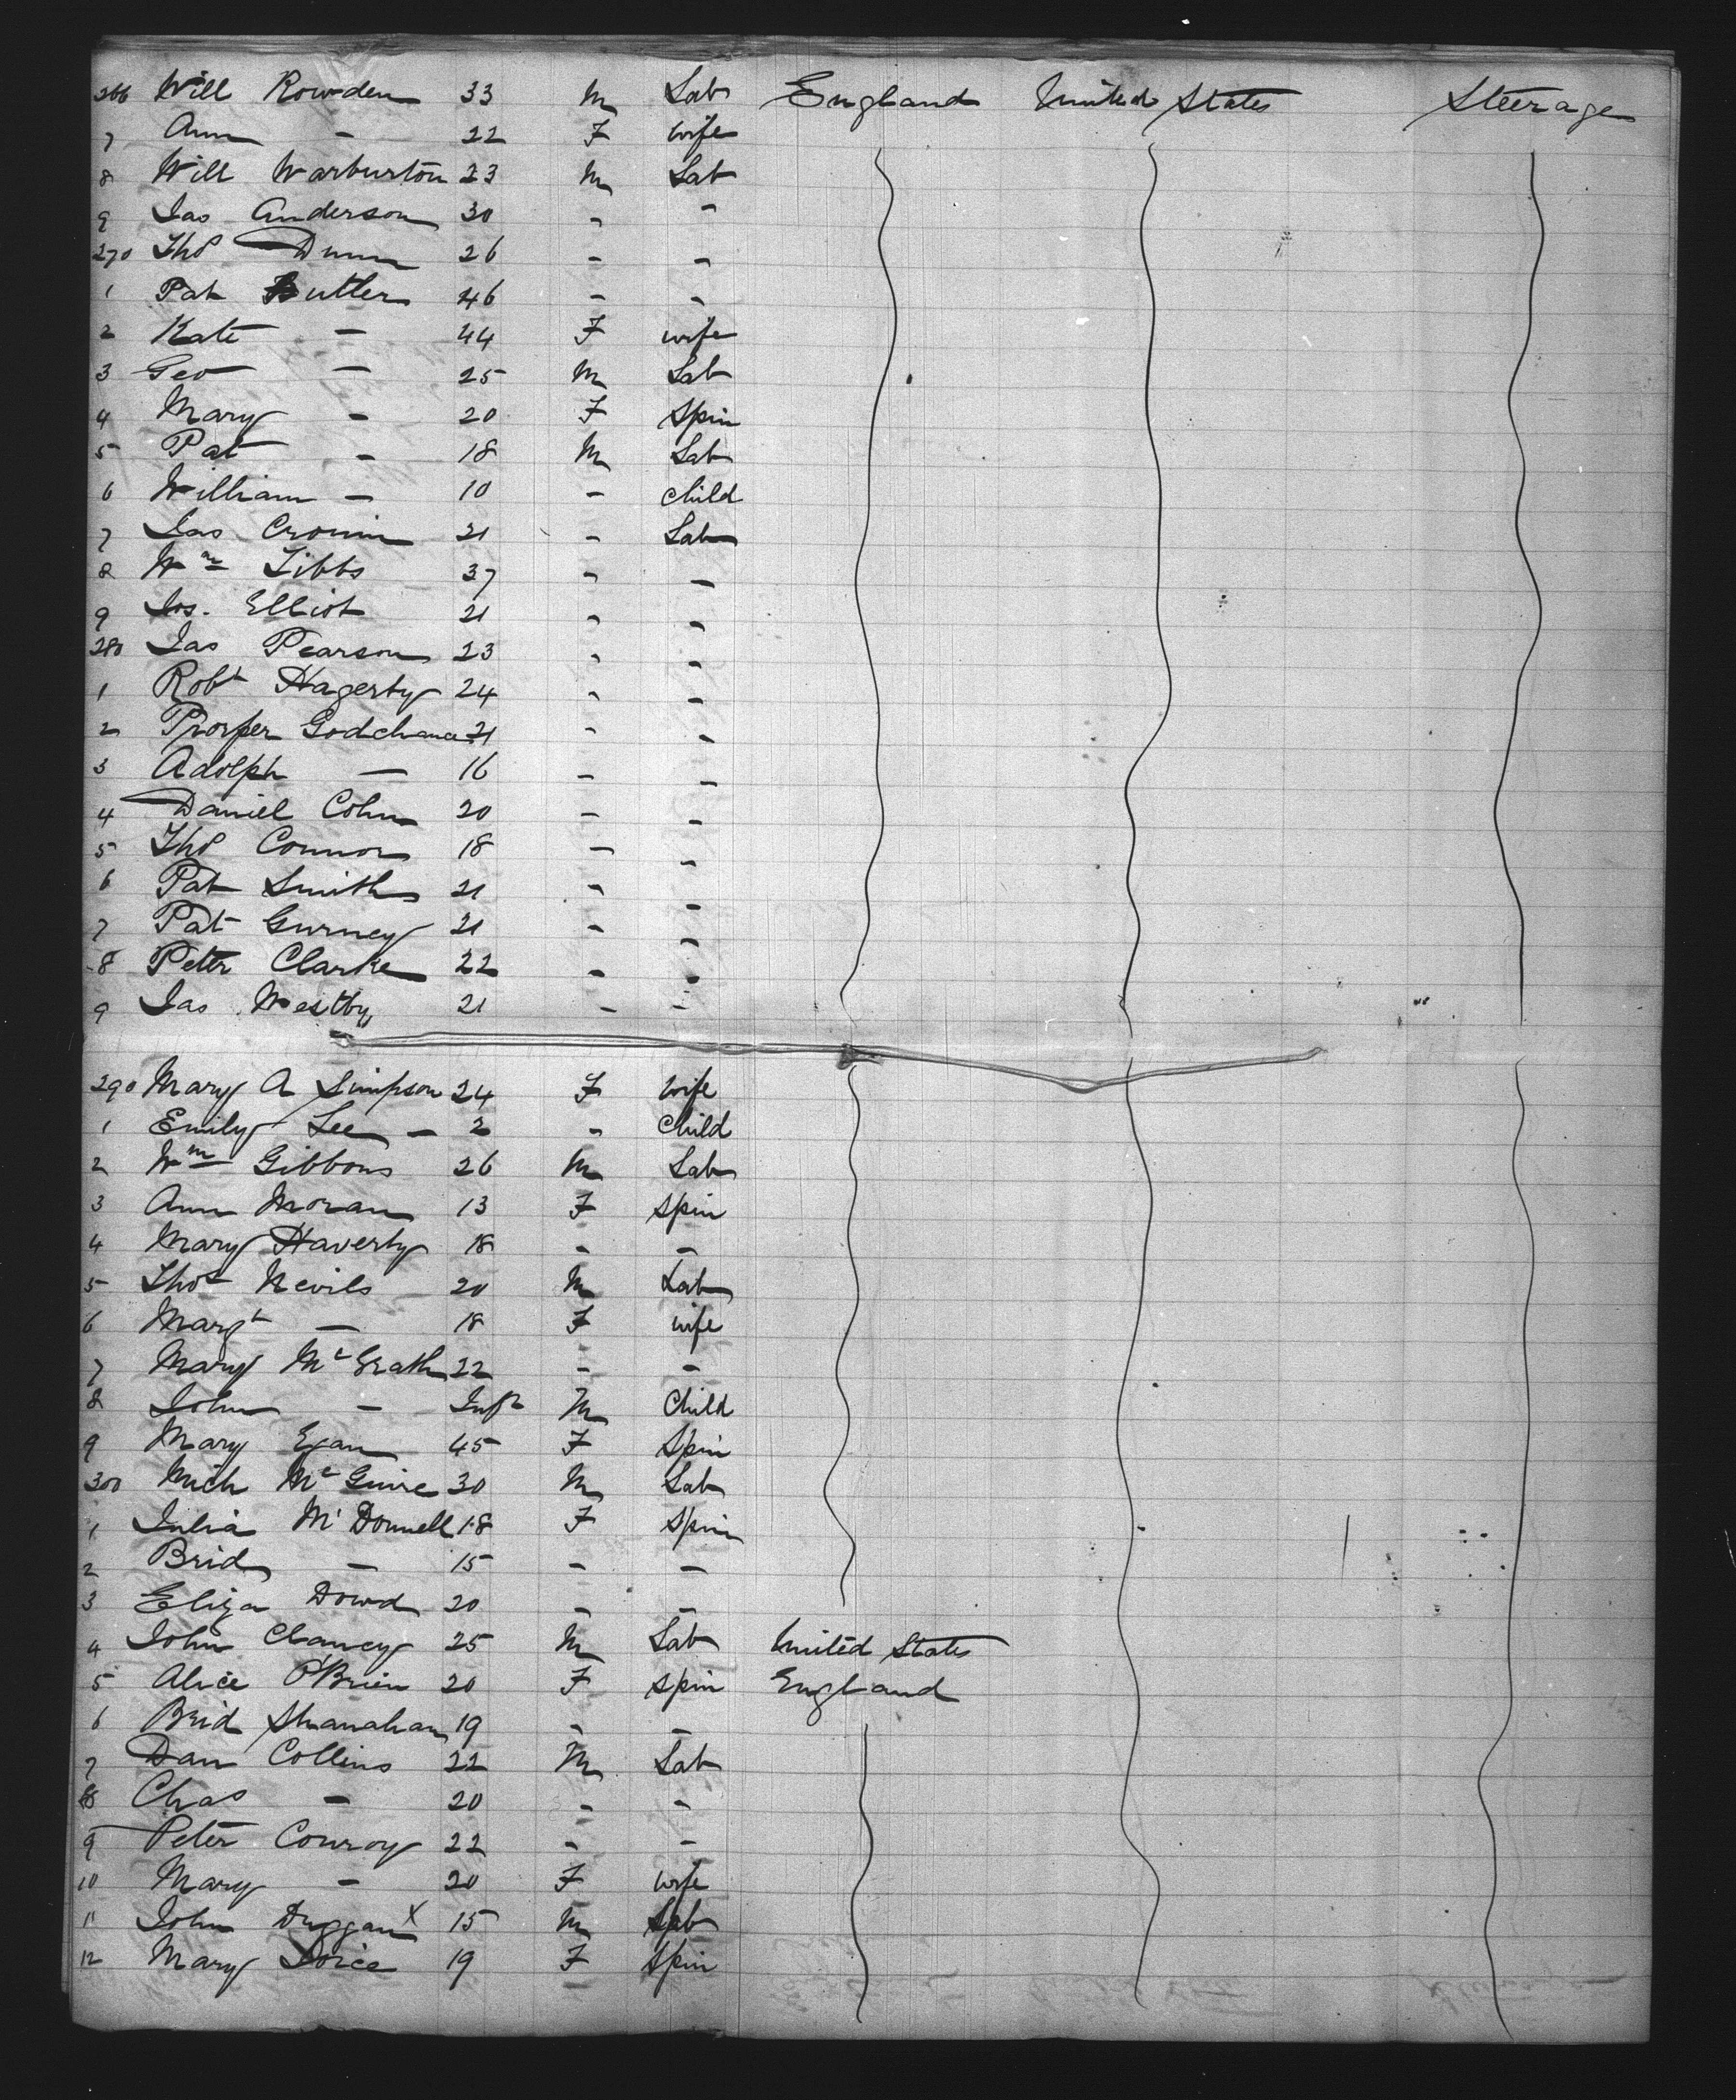 266 Will Rowden 33 M Lab England United States Steerage
7 Ann - 22 F wife
8 Will Warburton 23 M Lab
9 Jas Anderson 30 - -
270 Thos Dunn 26 - -
1 Pat Butler 46 - -
2 Kate - 44 F wife
3 Geo - 25 M Lab
4 Mary - 20 F Spin
5 Pat - 18 M Lab
6 William - 10 - child
7 Jas Cronin 21 - Lab
8 Wm Tibbs 37 - -
9 Jos. Elliot 21 - -
280 Jas Pearson 23 - -
1 Robt Hagerty 24 - -
2 Prosper 21 - -
3 Adolph - 16 - -
4 Daniel Cohn 20 - -
5 Thos Connor 18 - -
6 Pat Smith 21 - -
7 Pat Gurney 21 - -
8 Peter Clarke 22 - -
9 Jas Westby 21 - -
290 Mary A Simpson 24 F wife
1 Emily Lee - 2 - Child
2 Wm Gibbons 26 M Lab
3 Ann Moran 13 F Spin
4 Mary Haverty 18 - -
5 Thos Nevils 20 M Lab
6 Margt - 18 F wife
7 Mary McGrath 22 - -
8 John - Inft M Child
9 Mary Egan 45 F Spin
300 Mich McGuire 30 M Lab
1 Julia McDonnell 18 F Spin
2 Brid - 15 - -
3 Eliza Dowd 20 - -
4 John Clancy 25 M Lab United States
5 Alice O'Brien 20 F Spin England
6 Brid Shanahan 19 - -
7 Dan Collins 22 M Lab
8 Chas - 20 - -
9 Peter Conroy 22 - -
10 Mary - 20 F wife
11 John Duggan X 15 M Lab
12 Mary 19 F Spin